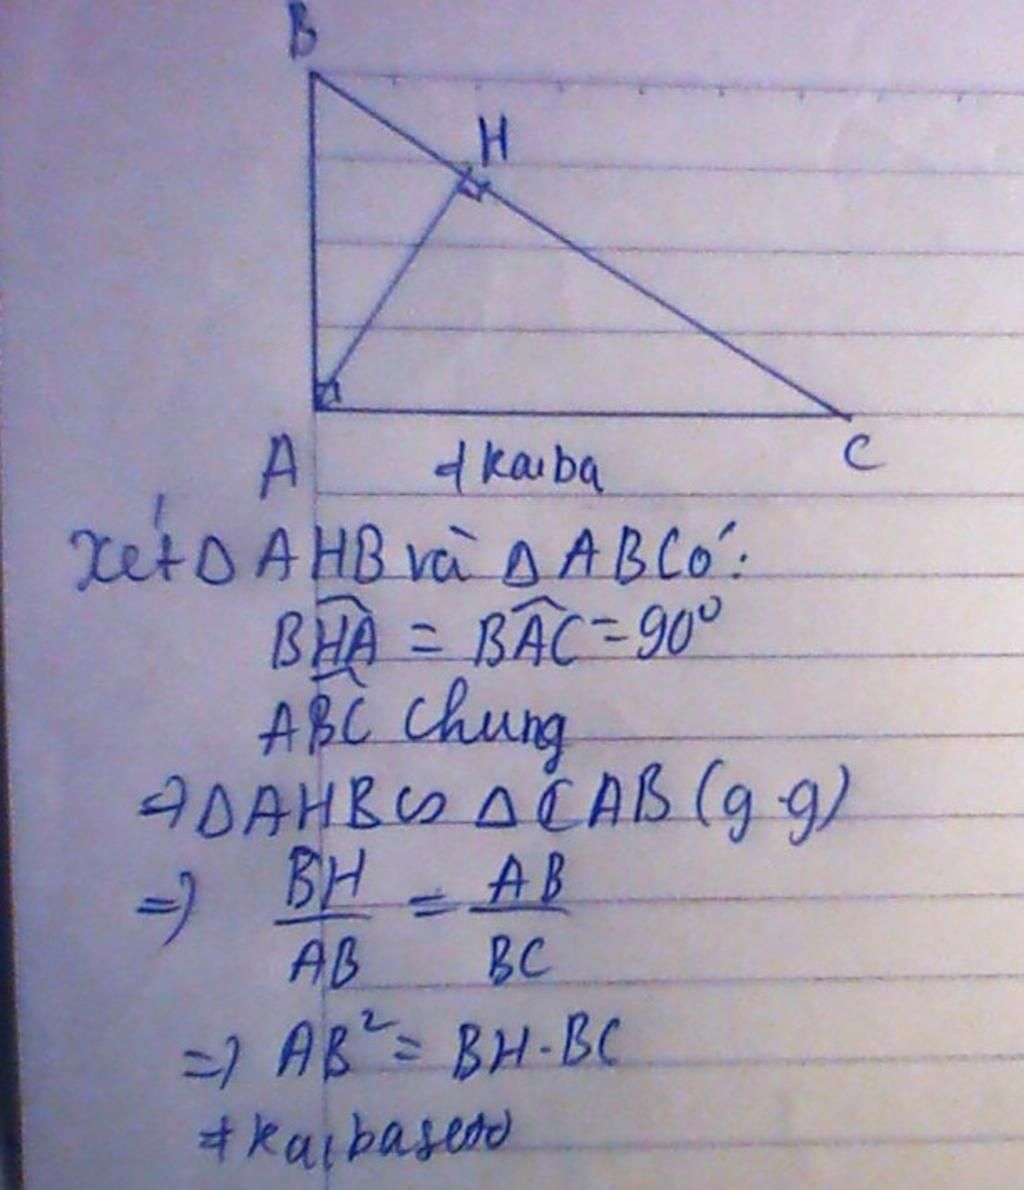 B
H
A
C
#kaiba
Xét Δ AHB và Δ ABCó:
BHA = BAC = 90°
ABC chung
⇒ Δ AHB ∽ Δ CAB (g.g)
⇒ BH/AB = AB/BC
⇒ AB² = BH.BC
#kaibaseto